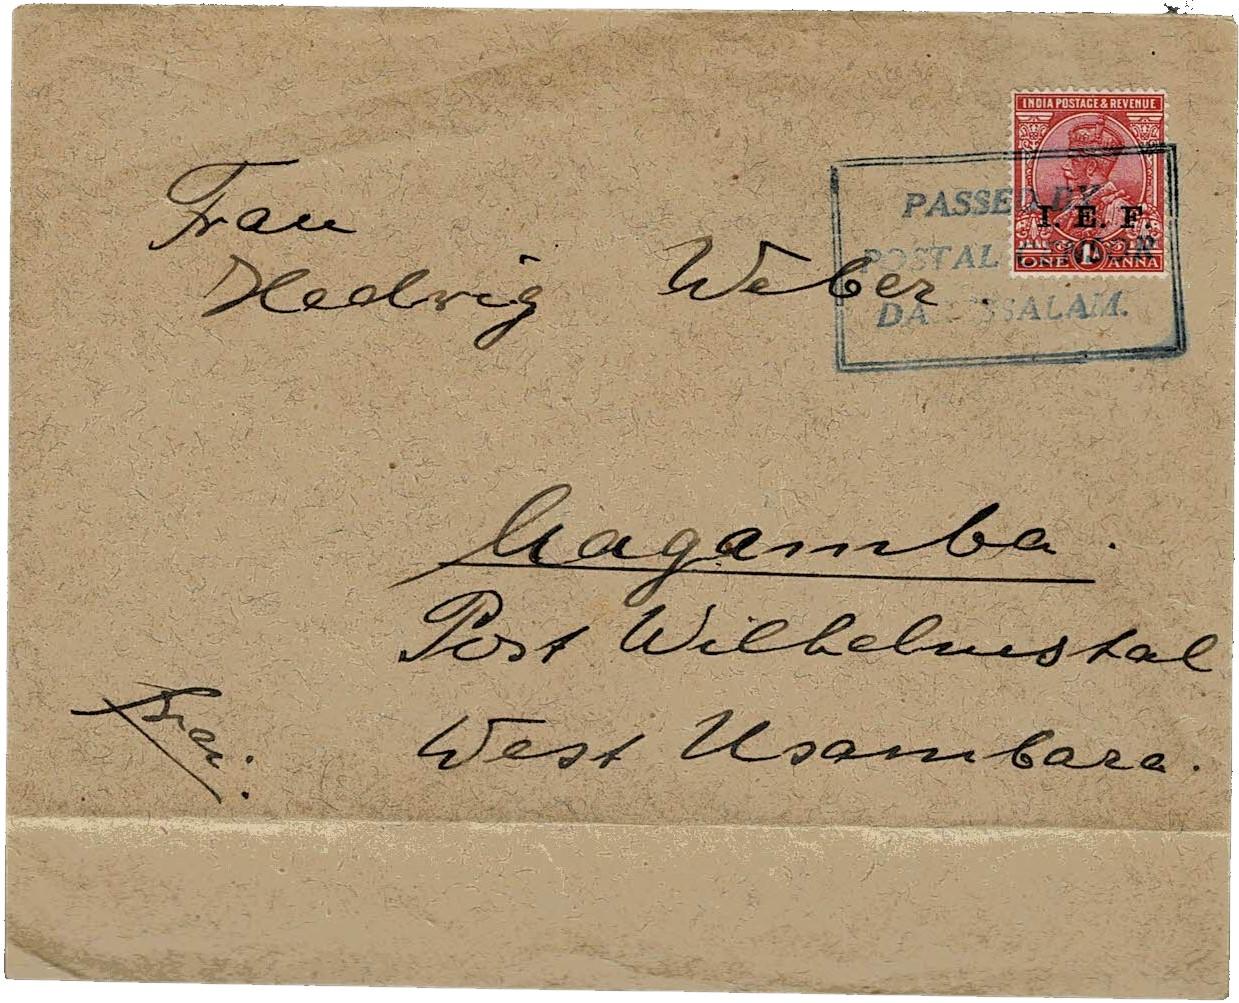 INDIA POSTAGE & REVENUE
I. E. F.
ONE 1 ANNA
PASSED BY
POSTAL
DA SSALAM.
Frau
Hedwig Weber.
Gagamba.
Post Wilhelmstal
West Usambara.